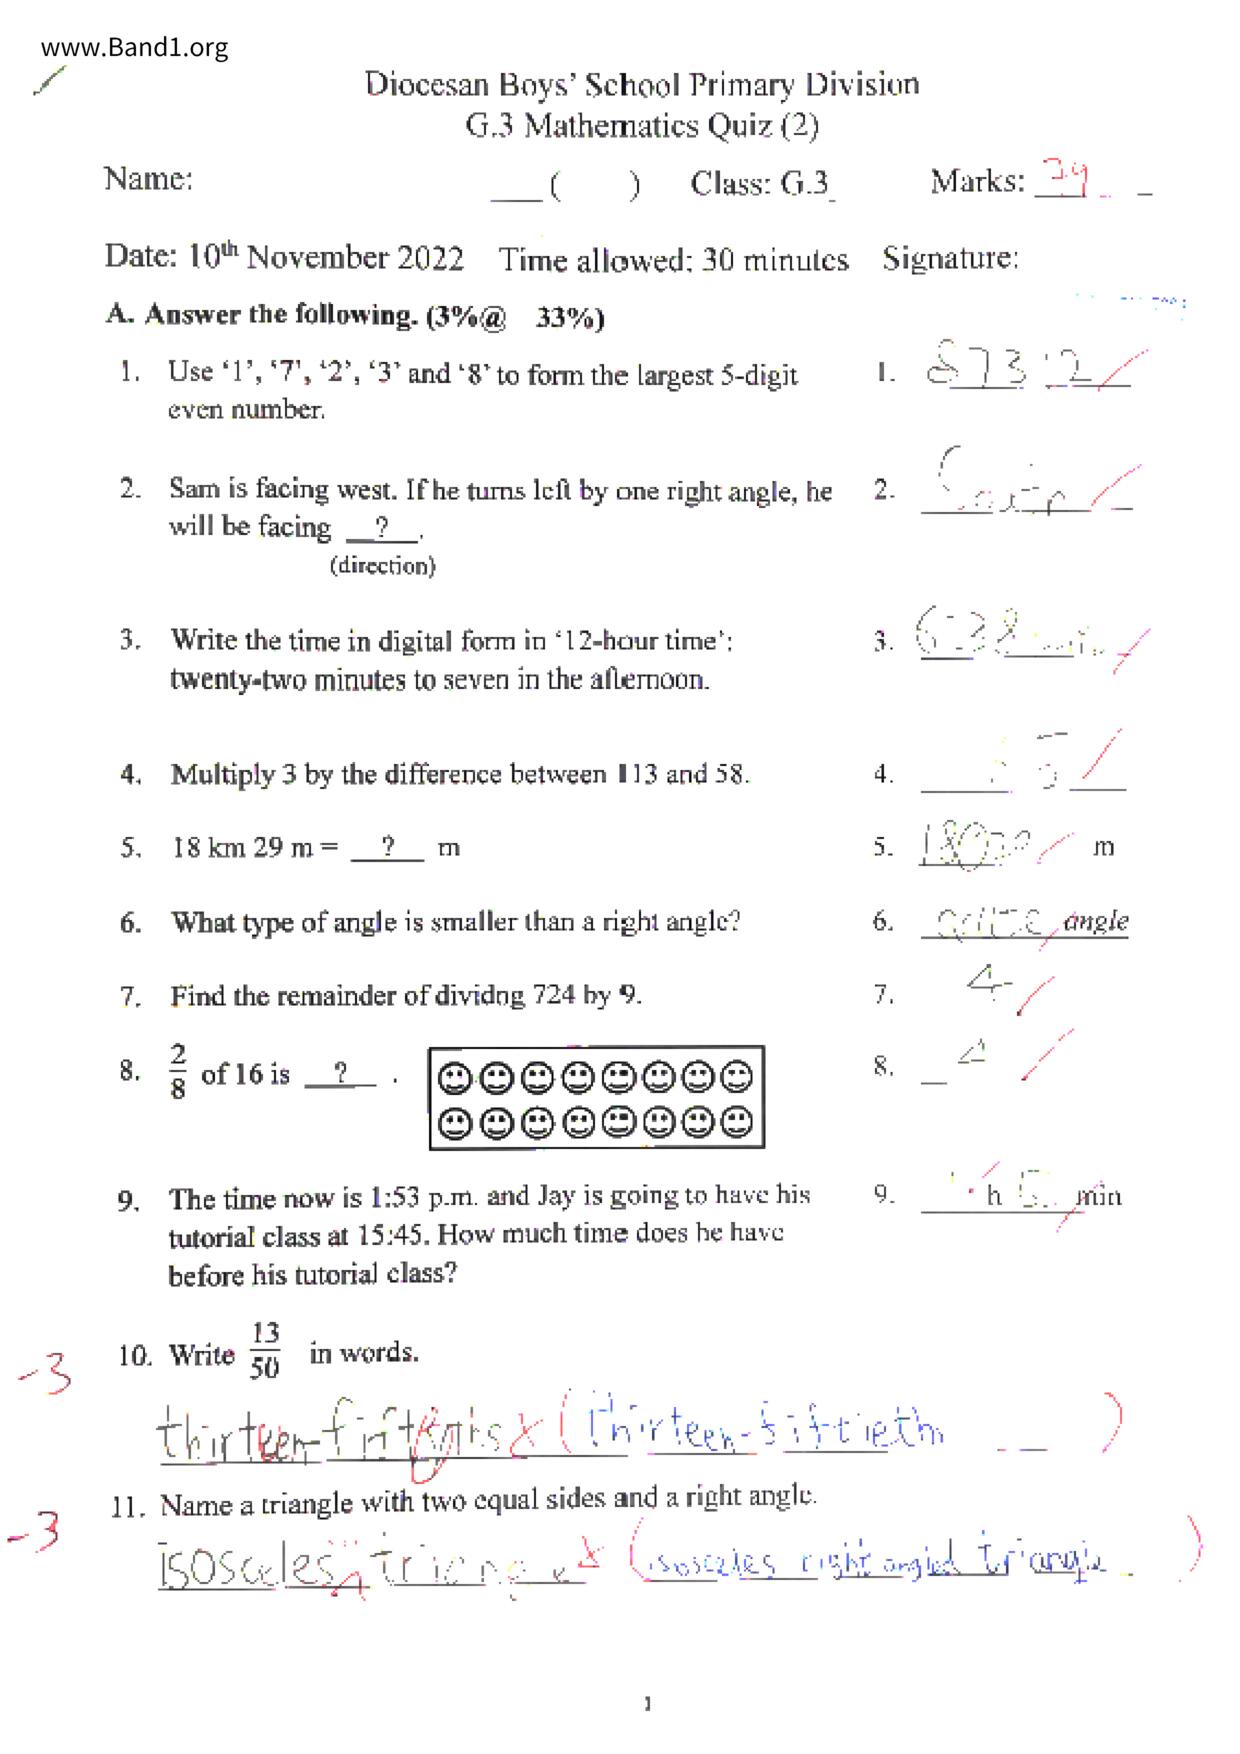 www.Band1.org
Diocesan Boys' School Primary Division
G.3 Mathematics Quiz (2)
Name: ___ ( ) Class: G.3 Marks:
Date: 10th November 2022 Time allowed: 30 minutes Signature:
A. Answer the following. (3%@ 33%)
1. Use '1', '7', '2', '3' and '8' to form the largest 5-digit 1. 87312
even number.
2. Sam is facing west. If he turns left by one right angle, he 2.
will be facing ? .
(direction)
3. Write the time in digital form in '12-hour time': 3.
twenty-two minutes to seven in the afternoon.
4. Multiply 3 by the difference between 113 and 58. 4.
5. 18 km 29 m = ? m 5. 18029 m
6. What type of angle is smaller than a right angle? 6. acute angle
7. Find the remainder of dividng 724 by 9. 7. 4
8. 2/8 of 16 is ? . 8. 4
9. The time now is 1:53 p.m. and Jay is going to have his 9. h min
tutorial class at 15:45. How much time does he have
before his tutorial class?
10. Write 13/50 in words.
-3
thirteen-fiftieths (thirteen-fiftieth )
11. Name a triangle with two equal sides and a right angle.
-3
isosceles triangle (isosceles right angled triangle )
1